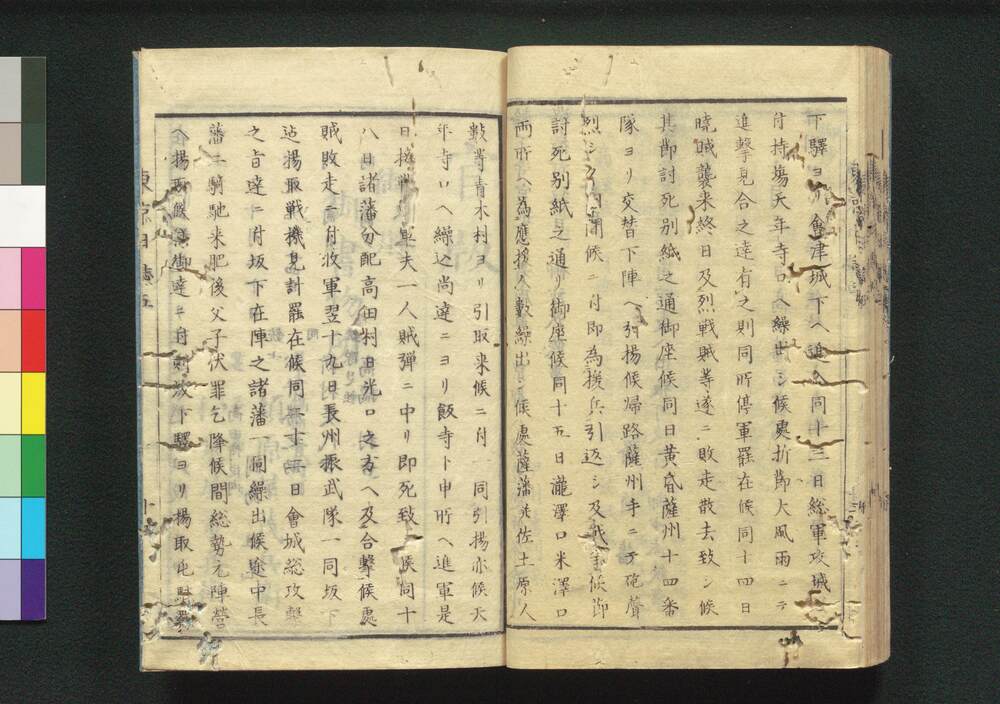 下驛ヨリ會津城下ヘ進入同十三日総軍攻城ニ
付持塲天年寺口ヘ繰出シ候處折節大風雨ニテ
進撃見合之達有之則同所停軍罷在候同十四日
曉賊襲来終日及烈戦賊等遂ニ敗走散去致シ候
其節討死別紙之通御座候同日黄昏薩州十四番
隊ヨリ交替下陣ヘ引揚候帰路薩州手ニテ砲聲
烈シク相聞候ニ付即為援兵引返シ及戦争候節
討死別紙之通リ御座候同十五日瀧澤口米澤口
両所ヘ為應援人數繰出シ候處薩藩并佐土原人
數等青木村ヨリ引取来候ニ付一同引揚亦候天
年寺口ヘ繰込尚達ニヨリ飯寺ト申所ヘ進軍是
日接戦ノ砌軍夫一人賊弾ニ中リ即死致シ候同十
八日諸藩分配高田村日光口之方ヘ及合撃候處
賊敗走ニ付收軍翌十九日長州振武隊一同坂下
迠揚取戦機見計罷在候同二十二日會城総攻撃
之旨達ニ付坂下在陣之諸藩一同繰出候途中長
藩一騎馳来肥後父子伏罪乞降候間総勢元陣営
ヘ揚取候様御達ニ付則坂下驛ヨリ揚取屯駐罷
東京日誌五